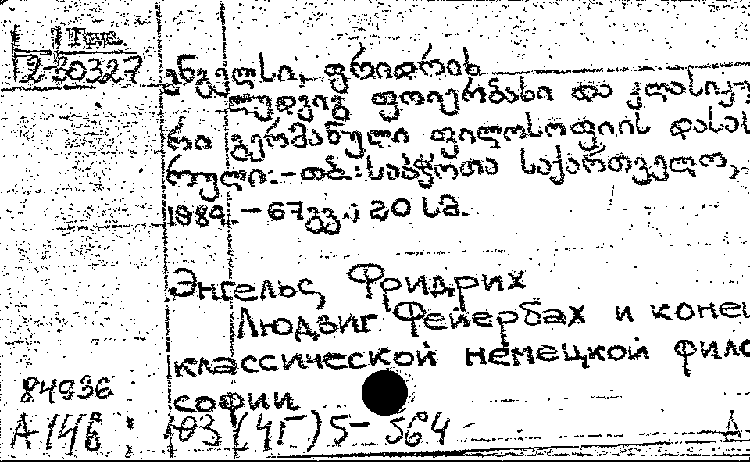 Груз.
2-30327
ენგელსი, ფრიდრიხ
ლუდვიგ ფოიერბახი და კლასიკუ
რი გერმანული ფილოსოფიის დასას
რული.-თბ.:საბჭოთა საქართველო,
1989.-67გვ.; 20 სმ.
Энгельс, Фридрих
Людвиг Фейербах и конец
классической немецкой фило
софии
84936
А-146 : 1Ф3(4Г)5-564